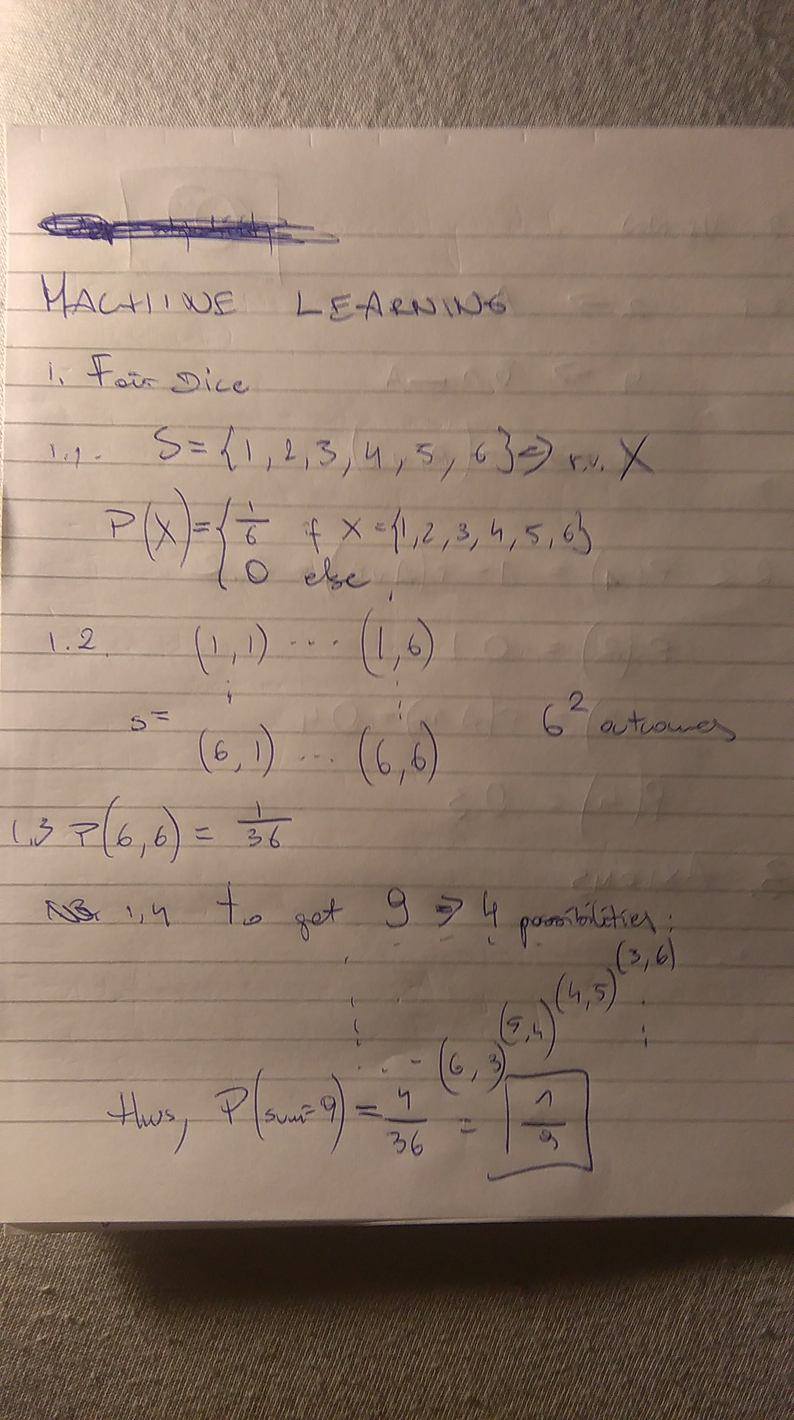 MACHINE LEARNING
1. Fair Dice
1.1. S = {1, 2, 3, 4, 5, 6} ⇒ r.v. X
P(X) = { 1/6 if X = {1, 2, 3, 4, 5, 6}
0 else
1.2. (1,1) ... (1,6)
s = 6² outcomes
(6,1) ... (6,6)
1.3 P(6,6) = 1/36
1.4 to get 9 ⇒ 4 possibilities:
(3,6)
(4,5)
(5,4)
... (6,3)
thus, P(sum=9) = 4/36 = 1/9